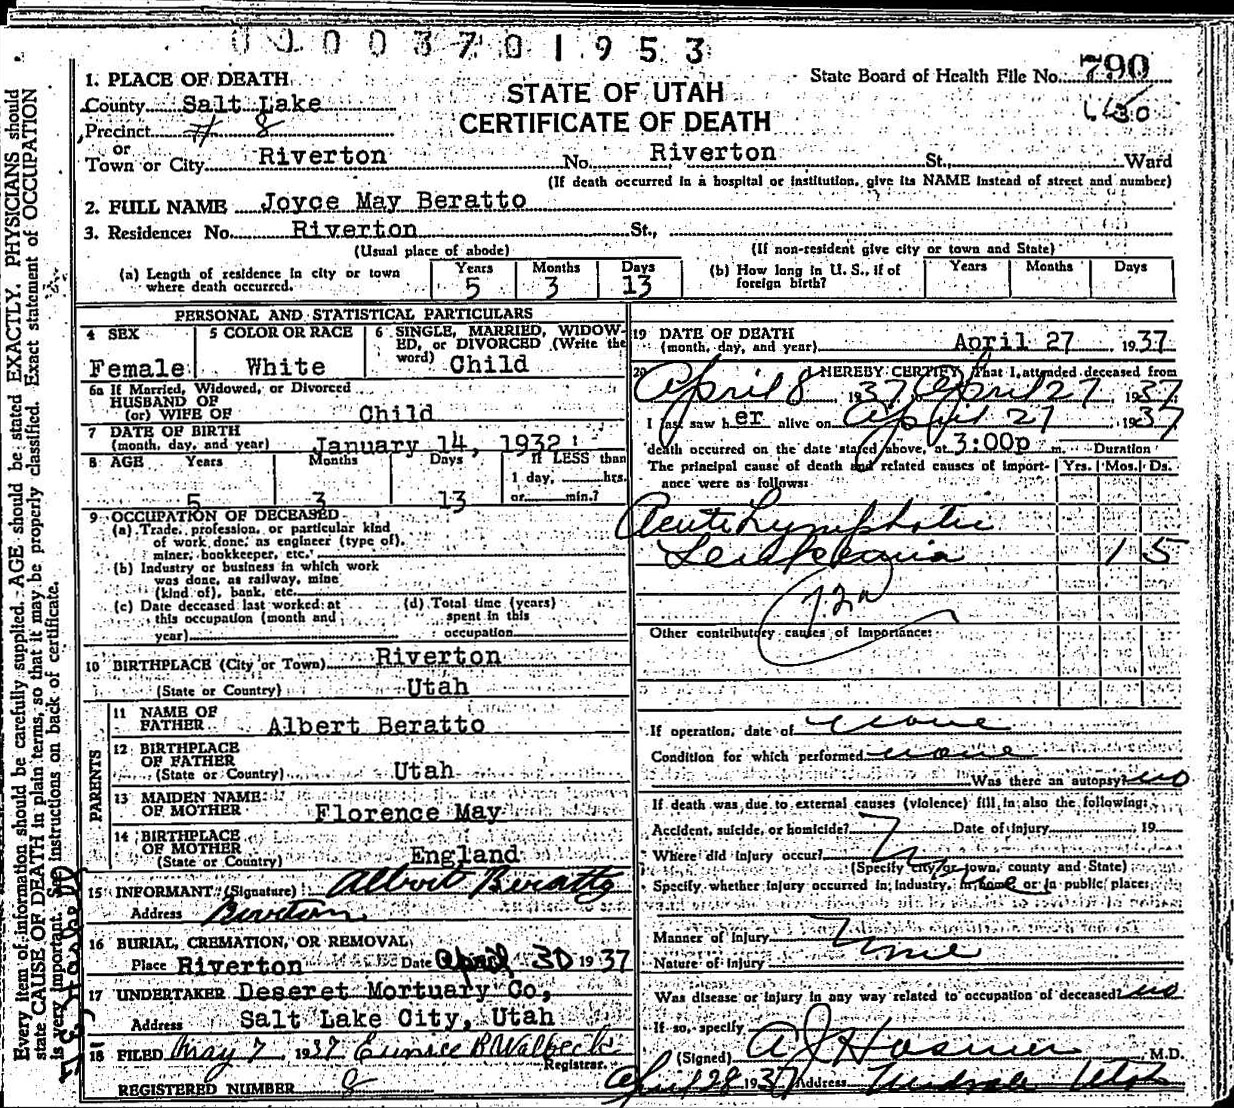 0 0 0 0 3 7 0 1 9 5 3
1. PLACE OF DEATH
County Salt Lake
Precinct # 8
or
Town or City Riverton
STATE OF UTAH
CERTIFICATE OF DEATH
State Board of Health File No. 790
No. Riverton St., Ward
(If death occurred in a hospital or institution, give its NAME instead of street and number)
2. FULL NAME Joyce May Beratto
3. Residence: No. Riverton St.,
(Usual place of abode) (If non-resident give city or town and State)
(a) Length of residence in city or town where death occurred. Years 5 Months 3 Days 13
(b) How long in U. S., if of foreign birth? Years Months Days
PERSONAL AND STATISTICAL PARTICULARS
4 SEX Female
5 COLOR OR RACE White
6 SINGLE, MARRIED, WIDOW-
ED, or DIVORCED (Write the
word) Child
6a If Married, Widowed, or Divorced
HUSBAND OF
(or) WIFE OF Child
7 DATE OF BIRTH
(month, day, and year) January 14, 1932
8 AGE Years 5 Months 3 Days 13
If LESS than
1 day, hrs.
or min.?
9 OCCUPATION OF DECEASED
(a) Trade, profession, or particular kind
of work done, as engineer (type of),
miner, bookkeeper, etc.
(b) Industry or business in which work
was done, as railway, mine
(kind of), bank, etc.
(c) Date deceased last worked at
this occupation (month and
year)
(d) Total time (years)
spent in this
occupation
10 BIRTHPLACE (City or Town) Riverton
(State or Country) Utah
PARENTS
11 NAME OF
FATHER Albert Beratto
12 BIRTHPLACE
OF FATHER
(State or Country) Utah
13 MAIDEN NAME
OF MOTHER Florence May
14 BIRTHPLACE
OF MOTHER
(State or Country) England
15 INFORMANT (Signature) Albert Beratto
Address Riverton
16 BURIAL, CREMATION, OR REMOVAL
Place Riverton Date April 30 1937
17 UNDERTAKER Deseret Mortuary Co,
Address Salt Lake City, Utah
18 FILED May 7 1937 Eunice B Walbeck
Registrar.
REGISTERED NUMBER 8
19 DATE OF DEATH
(month, day, and year) April 27 1937
20 I HEREBY CERTIFY, That I attended deceased from
April 8 1937, April 27 1937
I last saw h er alive on April 27 1937
death occurred on the date stated above, at 3:00p m. Duration
The principal cause of death and related causes of import-
ance were as follows: Yrs. Mos. Ds.
Acute Lymphatic
Leukaemia 1 5
72a
Other contributory causes of importance:
If operation, date of none
Condition for which performed none
Was there an autopsy? no
If death was due to external causes (violence) fill in also the following:
Accident, suicide, or homicide? Date of injury 19
Where did injury occur?
(Specify city or town, county and State)
Specify whether injury occurred in industry, in home or in public place:
Manner of Injury None
Nature of Injury
Was disease or injury in any way related to occupation of deceased? no
If so, specify
(Signed) A J Hosmer M.D.
April 28 1937 Address Midvale Utah
Every item of information should be carefully supplied. AGE should be stated EXACTLY. PHYSICIANS should
state CAUSE OF DEATH in plain terms, so that it may be properly classified. Exact statement of OCCUPATION
is very important. See instructions on back of certificate.